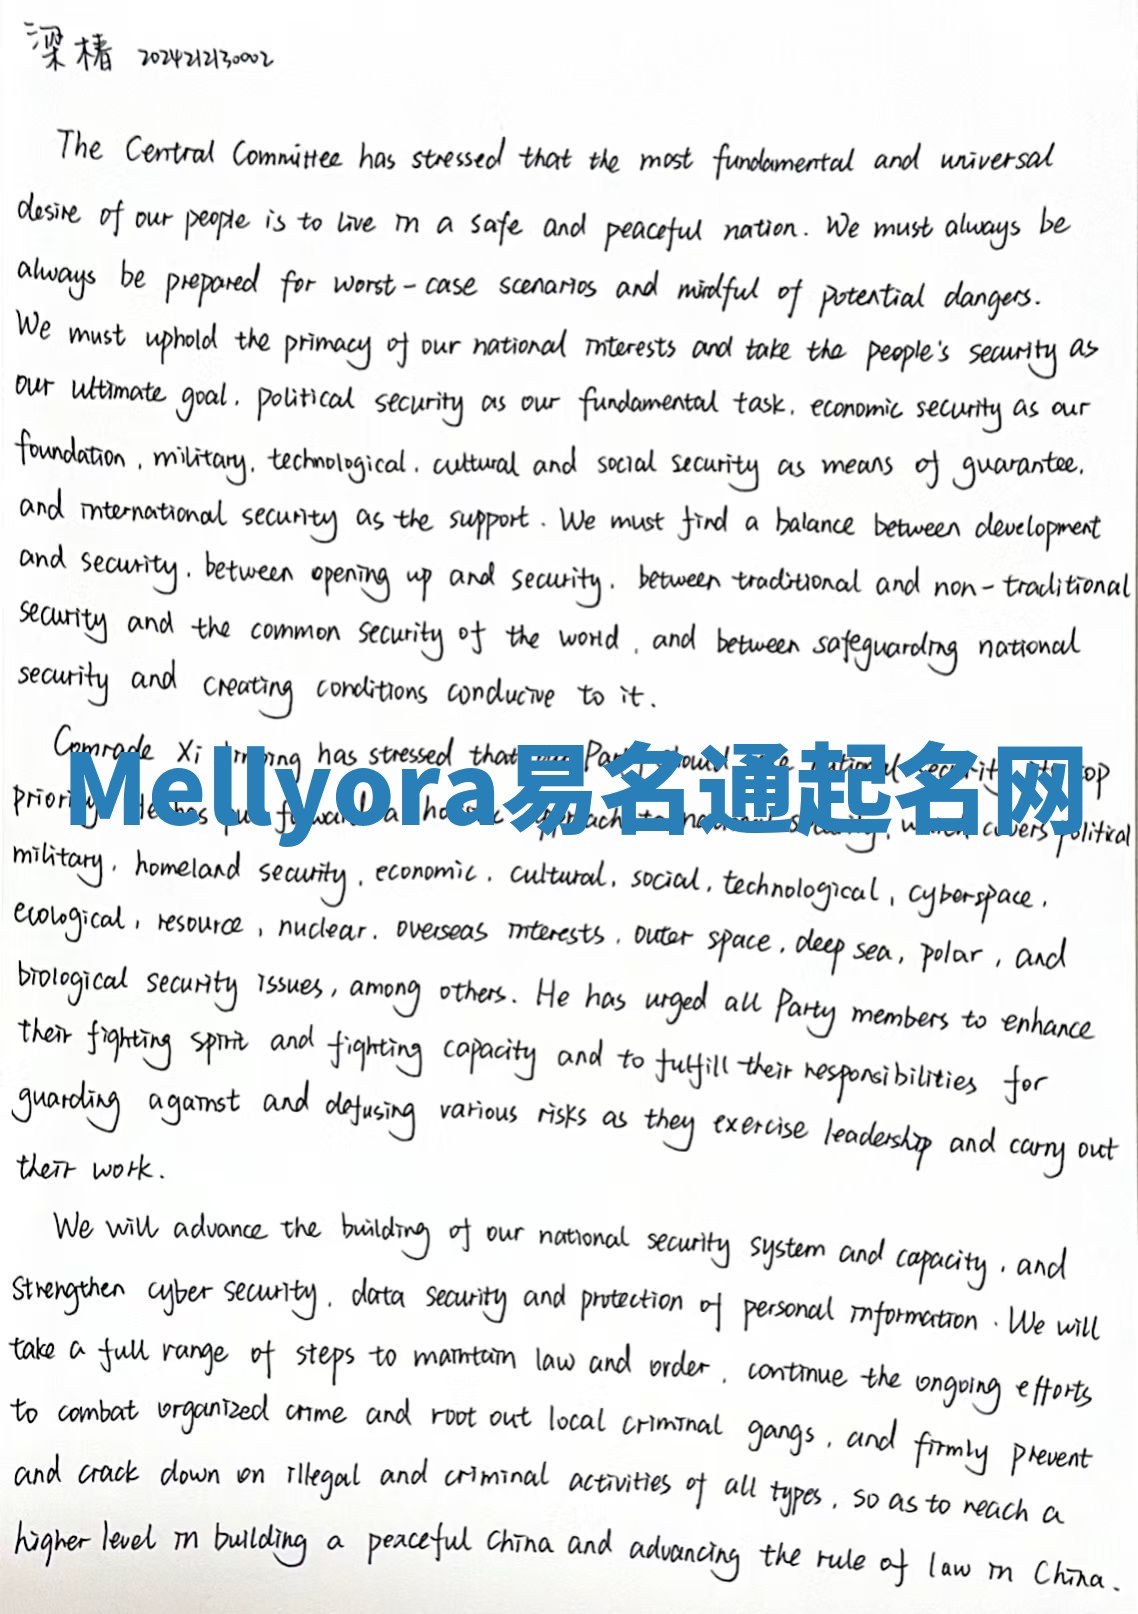 梁椿 2024212130002
The Central Committee has stressed that the most fundamental and universal
desire of our people is to live in a safe and peaceful nation. We must always be
always be prepared for worst-case scenarios and mindful of potential dangers.
We must uphold the primacy of our national interests and take the people's security as
our ultimate goal, political security as our fundamental task, economic security as our
foundation, military, technological, cultural and social security as means of guarantee,
and international security as the support. We must find a balance between development
and security, between opening up and security, between traditional and non-traditional
security and the common security of the world, and between safeguarding national
security and creating conditions conducive to it.
Comrade Xi has stressed that Party top
Mellyora易名通起名网
priority a covers political
military, homeland security, economic, cultural, social, technological, cyberspace,
ecological, resource, nuclear, overseas interests, outer space, deep sea, polar, and
biological security issues, among others. He has urged all Party members to enhance
their fighting spirit and fighting capacity and to fulfill their responsibilities for
guarding against and defusing various risks as they exercise leadership and carry out
their work.
We will advance the building of our national security system and capacity, and
strengthen cyber security, data security and protection of personal information. We will
take a full range of steps to maintain law and order, continue the ongoing efforts
to combat organized crime and root out local criminal gangs, and firmly prevent
and crack down on illegal and criminal activities of all types, so as to reach a
higher level in building a peaceful China and advancing the rule of law in China.